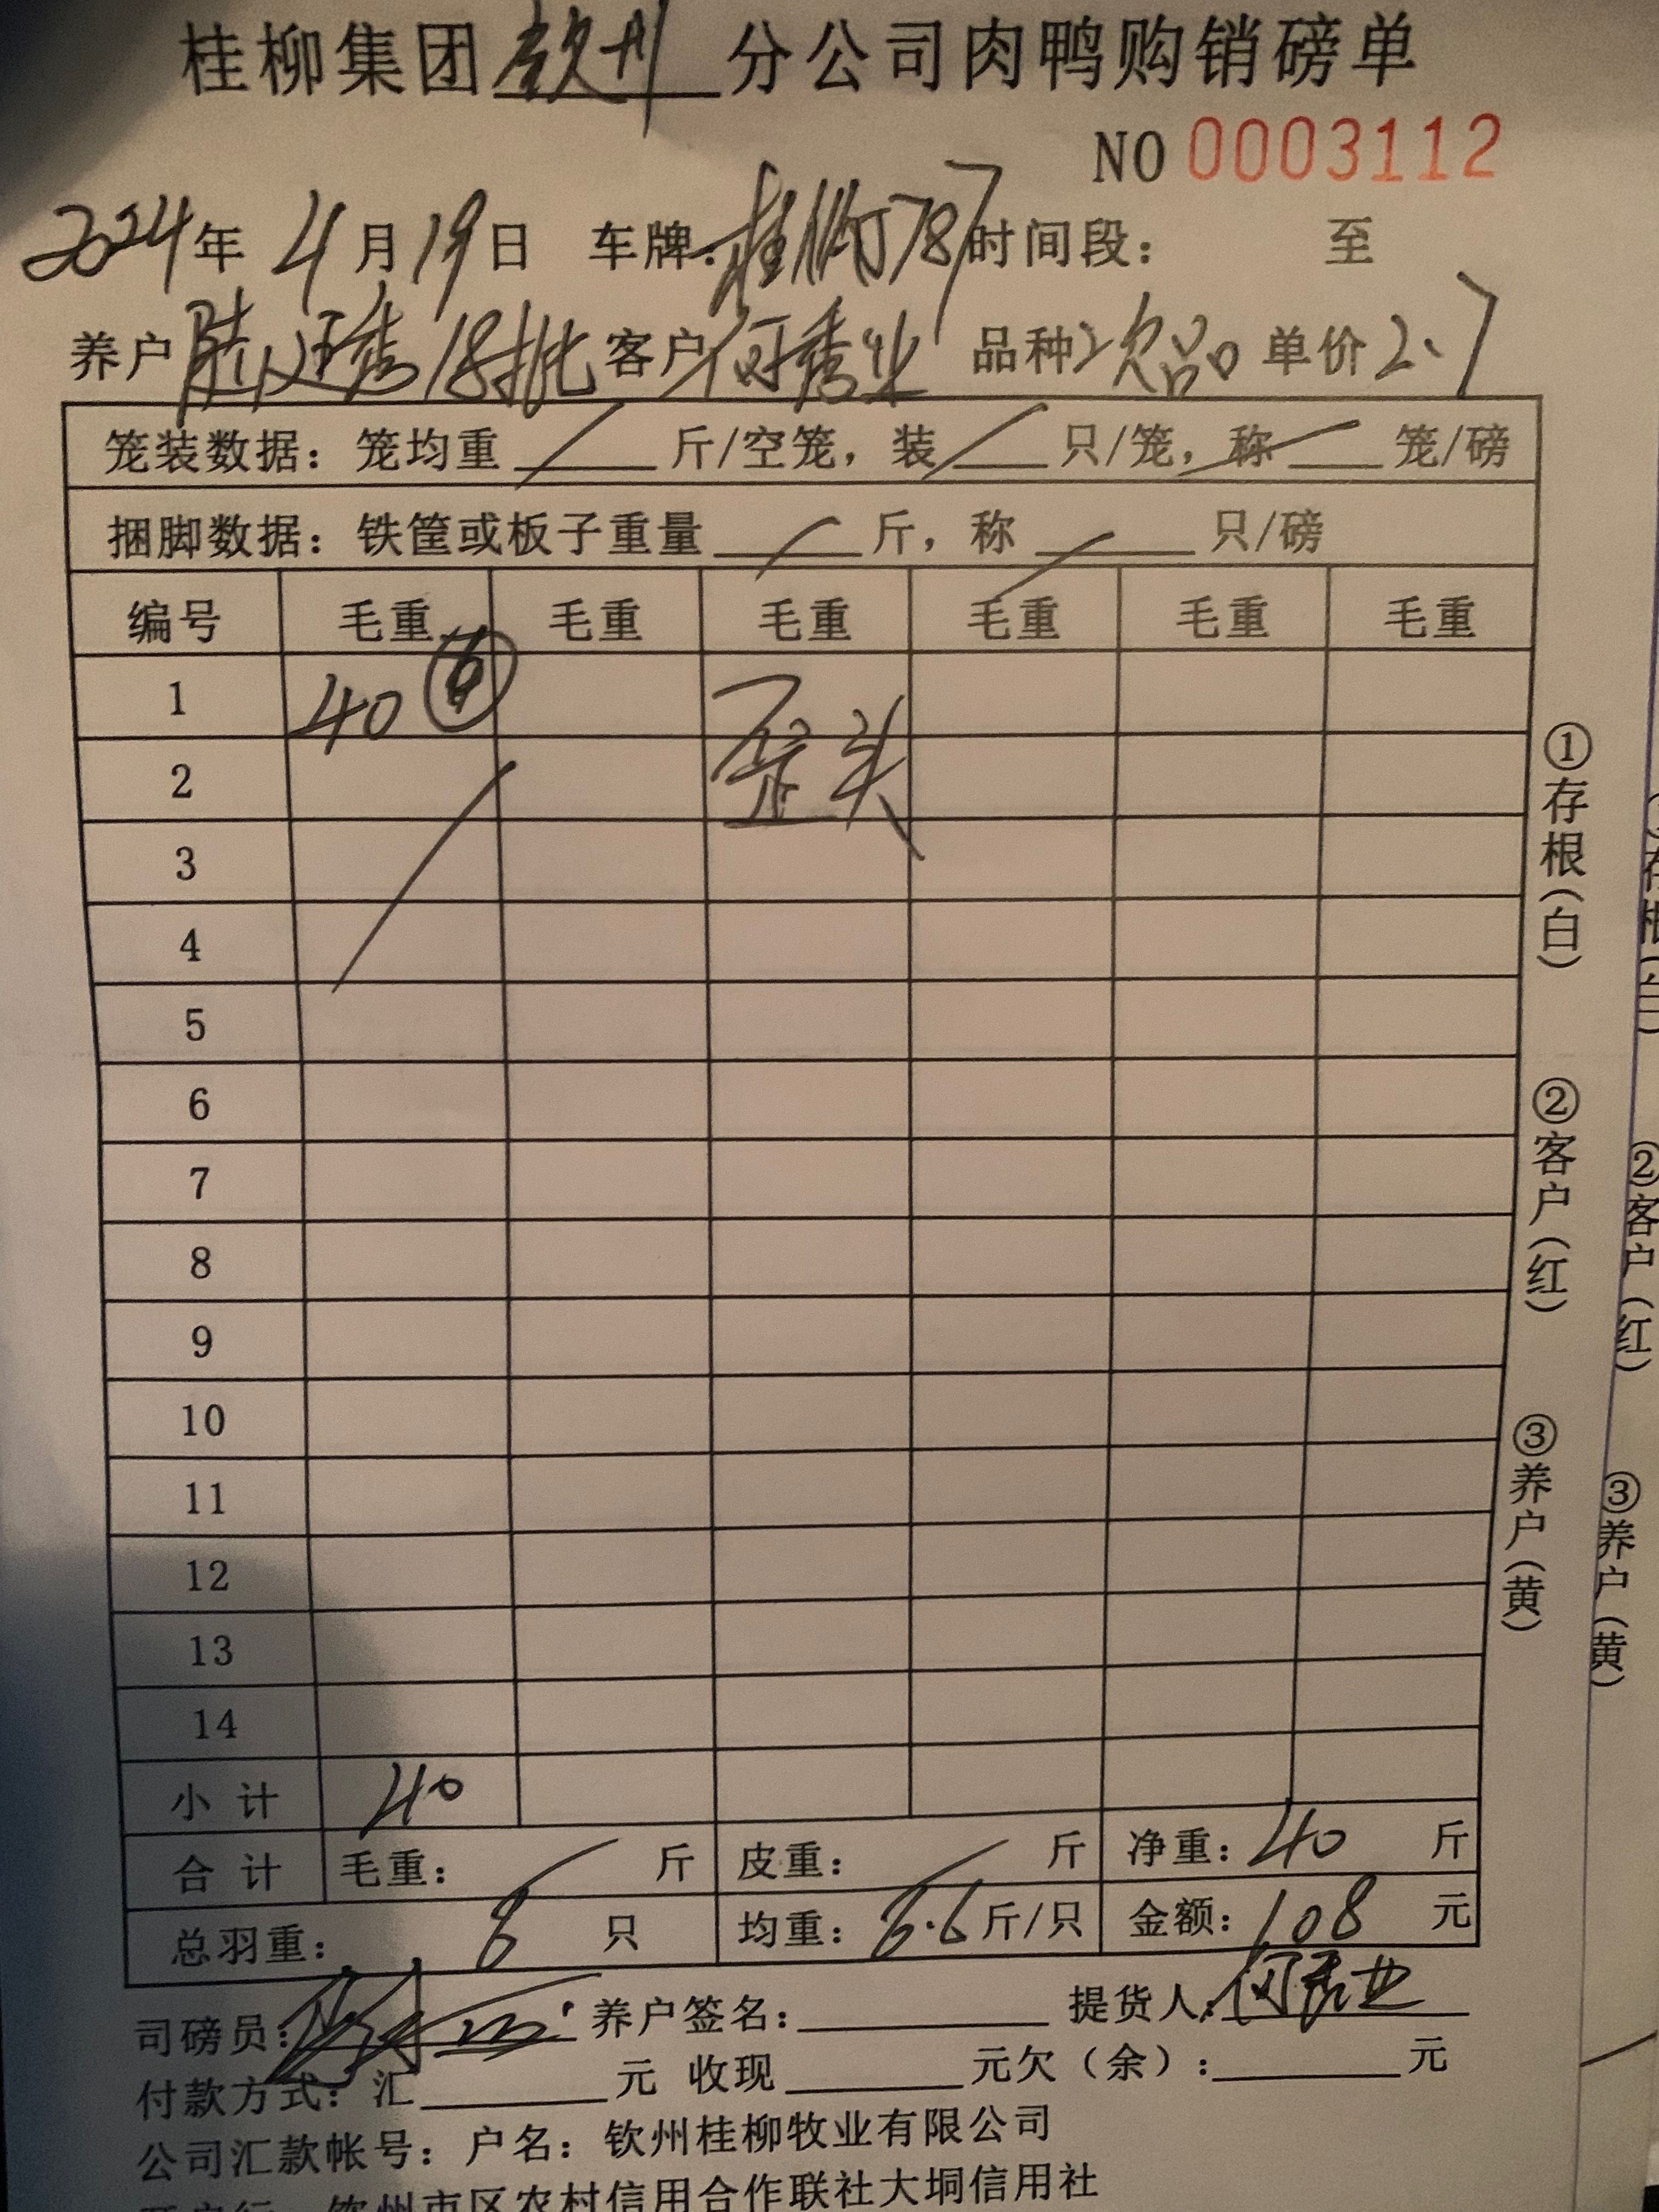 桂柳集团钦州分公司肉鸭购销磅单
NO 0003112
2024年4月19日 车牌：桂 787 时间段： 至
养户 18批 客户 何秀业 品种 次品 单价 2.7
笼装数据：笼均重 斤/空笼，装 只/笼，称 笼/磅
捆脚数据：铁筐或板子重量 斤，称 只/磅
编号 毛重 毛重 毛重 毛重 毛重 毛重
1 40
2 歪头
3
4
5
6
7
8
9
10
11
12
13
14
小计 40
合计 毛重： 斤 皮重： 斤 净重：40 斤
总羽重： 只 均重： 斤/只 金额：108 元
司磅员： 养户签名： 提货人：何秀业
付款方式：汇 元 收现 元欠（余）： 元
公司汇款帐号：户名：钦州桂柳牧业有限公司
开户行：钦州市区农村信用合作联社大垌信用社
①存根（白） ②客户（红） ③养户（黄）
①存根（白） ②客户（红） ③养户（黄）